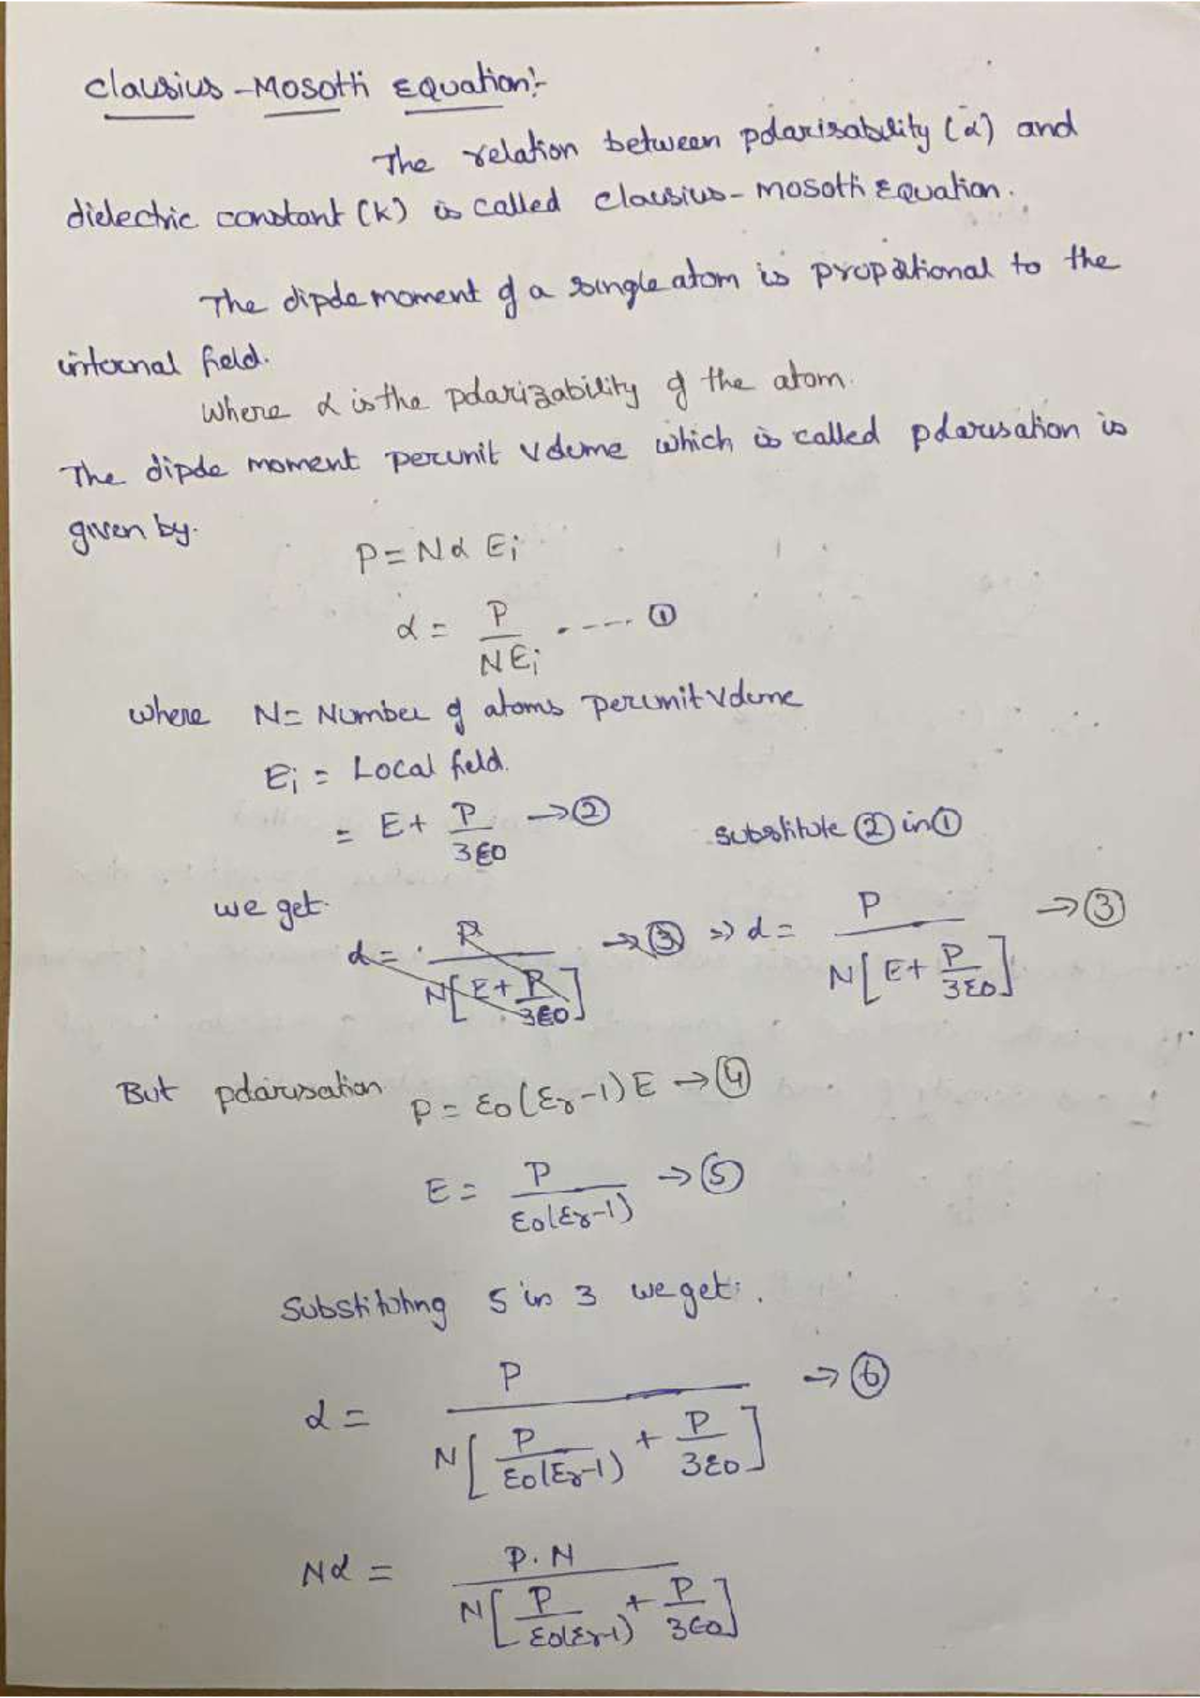 Clausius-Mosotti Equation:-
The relation between polarisability (α) and
dielectric constant (K) is called Clausius-Mosotti Equation.
The dipole moment of a single atom is proportional to the
internal field.
Where α is the polarizability of the atom.
The dipole moment per unit volume which is called polarisation is
given by.
P = Nα Ei
α = P / NEi ----- ①
where N = Number of atoms per unit volume
Ei = Local field.
= E + P / 3ε0 → ②  substitute ② in ①
we get.
α = P / N[E + P / 3ε0] → ③ ⇒ α = P / N[E + P / 3ε0] → ③
But polarisation P = ε0(εr-1)E → ④
E = P / ε0(εr-1) → ⑤
Substituting 5 in 3 we get:.
α = P / N[P / ε0(εr-1) + P / 3ε0] → ⑥
Nα = P.N / N[P / ε0(εr-1) + P / 3ε0]